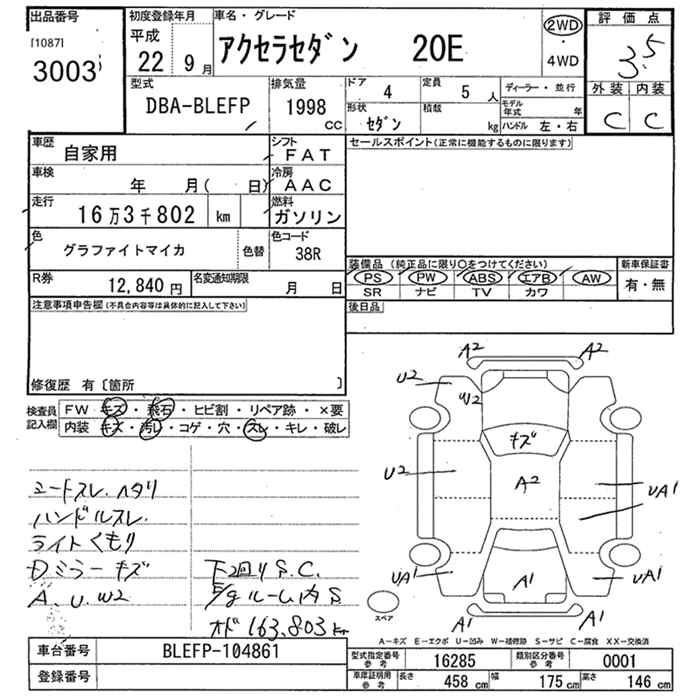 出品番号 初度登録年月 車名・グレード 評価点
[1087] 平成 アクセラセダン 20E 2WD ・ 4WD 3.5
3003 22 9月
型式 排気量 ドア 4 定員 5人 ディーラー・並行 外装 内装
DBA-BLEFP 1998 cc 形状 セダン 積載 kg モデル年式 年 C C
ハンドル 左・右
車歴 自家用 シフト FAT セールスポイント(正常に機能するものに限ります)
車検 年 月( 日) 冷房 AAC
走行 16万3千802 km 燃料 ガソリン
色 グラファイトマイカ 色替 色コード 38R
装備品(純正品に限り○をつけてください) 新車保証書
R券 12,840円 名変通知期限 月 日 PS PW ABS エアB AW 有・無
SR ナビ TV カワ
注意事項申告欄(不具合内容等は具体的に記入して下さい) 後日品
修復歴 有〔箇所 〕
検査員記入欄 FW キズ・飛石・ヒビ割・リペア跡・×要
内装 キズ・汚レ・コゲ・穴・スレ・キレ・破レ
A2 A2
U2 W2
キズ
U2 A2 UA1
UA1 A1 UA1
A1 A1
スペア
シートスレ.ハタリ
ハンドルスレ.
ライトくもり
Dミラーキズ 下回りS.C.
A.U.W2 E/gルーム内S
オド163,803km
A-キズ E-エクボ U-凹み W-補修跡 S-サビ C-腐食 XX-交換済
車台番号 BLEFP-104861 型式指定番号 参考 16285 類別区分番号 参考 0001
登録番号 車庫証明用 参考 長さ 458cm 幅 175cm 高さ 146cm